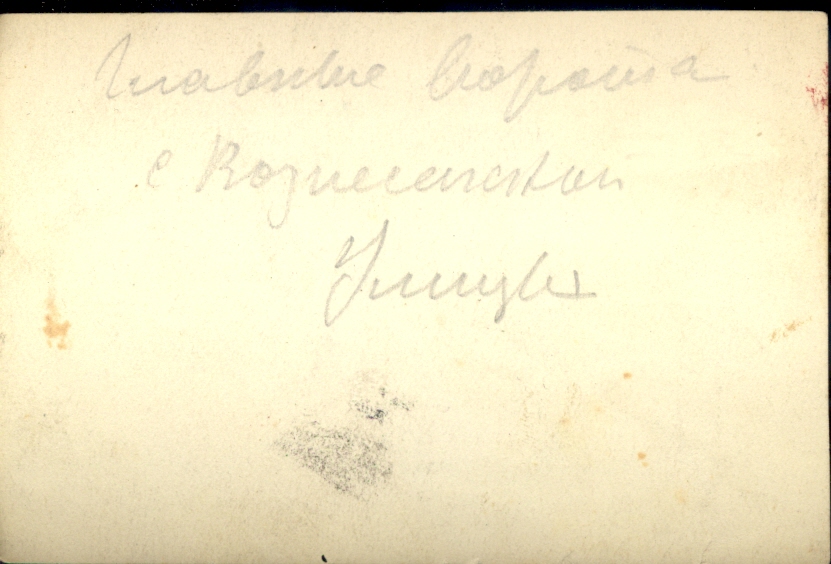 Главные ворота
с Вознесенской
Улицы